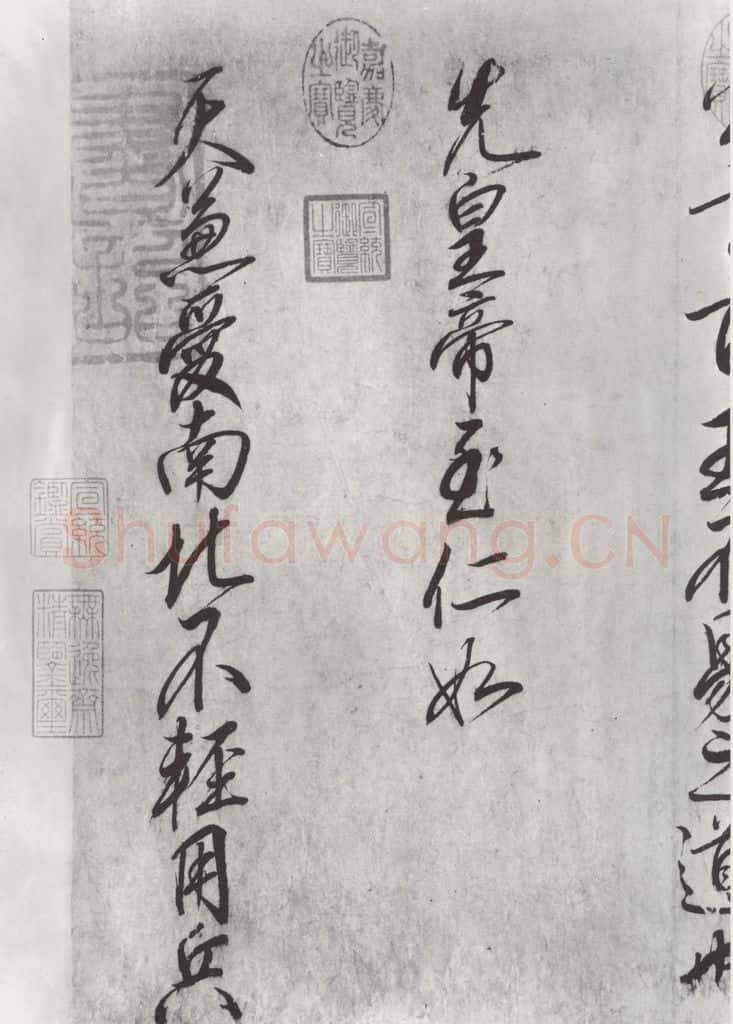 百王不易之道也
先皇帝至仁如
天兼愛南北不輕用兵
嘉慶御覽之寶
宣統御覽之寶
宣統鑑賞
無逸齋精鑒璽
Shufawang.CN